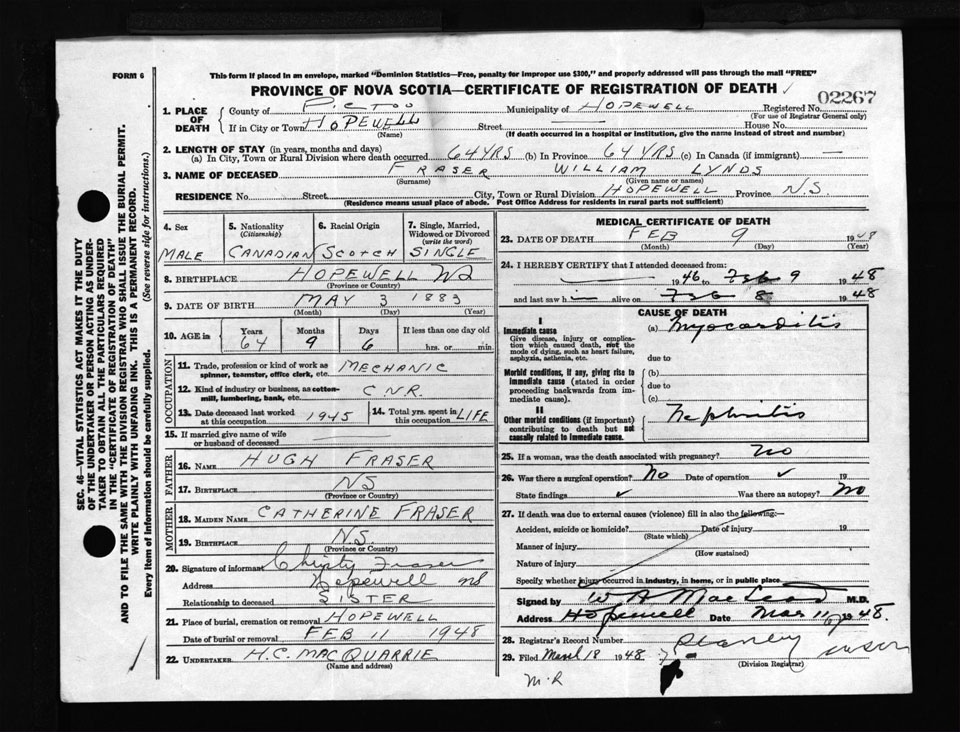 FORM 6
This form if placed in an envelope, marked "Dominion Statistics—Free, penalty for improper use $300," and properly addressed will pass through the mail "FREE"
PROVINCE OF NOVA SCOTIA—CERTIFICATE OF REGISTRATION OF DEATH
02267
1. PLACE OF DEATH
County of Pictou Municipality of HOPEWELL Registered No.
(For use of Registrar General only)
If in City or Town HOPEWELL Street House No.
(Name) (If death occurred in a hospital or institution, give the name instead of street and number)
2. LENGTH OF STAY (in years, months and days)
(a) In City, Town or Rural Division where death occurred 64 YRS (b) In Province 64 YRS (c) In Canada (if immigrant) —
3. NAME OF DECEASED FRASER WILLIAM LYNDS
(Surname) (Given name or names)
RESIDENCE No. Street City, Town or Rural Division HOPEWELL Province N.S.
(Residence means usual place of abode. Post Office Address for residents in rural parts not sufficient)
4. Sex
MALE
5. Nationality
(Citizenship)
CANADIAN
6. Racial Origin
SCOTCH
7. Single, Married, Widowed or Divorced
(write the word)
SINGLE
8. BIRTHPLACE HOPEWELL NS
(Province or Country)
9. DATE OF BIRTH MAY 3 1883
(Month) (Day) (Year)
10. AGE in
Years Months Days If less than one day old
64 9 6 hrs. or min.
OCCUPATION
11. Trade, profession or kind of work as spinner, teamster, office clerk, etc. MECHANIC
12. Kind of industry or business, as cotton-mill, lumbering, bank, etc. C.N.R.
13. Date deceased last worked at this occupation 1945
14. Total yrs. spent in this occupation LIFE
15. If married give name of wife or husband of deceased
FATHER
16. NAME HUGH FRASER
17. BIRTHPLACE NS
(Province or Country)
MOTHER
18. MAIDEN NAME CATHERINE FRASER
19. BIRTHPLACE N.S.
(Province or Country)
20. Signature of informant Christy Fraser
Address Hopewell NS
Relationship to deceased SISTER
21. Place of burial, cremation or removal HOPEWELL
Date of burial or removal FEB 11 1948
22. UNDERTAKER H.C. MACQUARRIE
(Name and address)
MEDICAL CERTIFICATE OF DEATH
23. DATE OF DEATH FEB 9 1948
(Month) (Day) (Year)
24. I HEREBY CERTIFY that I attended deceased from:
1946 to Feb 9 1948
and last saw him alive on Feb 8 1948
CAUSE OF DEATH
I
Immediate cause
Give disease, injury or complication which caused death, not the mode of dying, such as heart failure, asphyxia, asthenia, etc.
(a) Myocarditis
due to
Morbid conditions, if any, giving rise to immediate cause (stated in order proceeding backwards from immediate cause).
(b)
due to
(c)
II
Other morbid conditions (if important) contributing to death but not causally related to immediate cause.
Nephritis
25. If a woman, was the death associated with pregnancy? no
26. Was there a surgical operation? No Date of operation ✓ 19
State findings ✓ Was there an autopsy? No
27. If death was due to external causes (violence) fill in also the following:—
Accident, suicide or homicide? Date of injury 19
(State which)
Manner of injury
(How sustained)
Nature of injury
Specify whether injury occurred in industry, in home, or in public place
Signed by W A MacLeod M.D.
Address Hopewell Date Mar 11 1948
28. Registrar's Record Number
29. Filed March 18 1948 Stanley
(Division Registrar)
M.R
SEC. 46—VITAL STATISTICS ACT MAKES IT THE DUTY
OF THE UNDERTAKER OR PERSON ACTING AS UNDER-
TAKER TO OBTAIN ALL THE PARTICULARS REQUIRED
IN THE "CERTIFICATE OF REGISTRATION OF DEATH"
AND TO FILE THE SAME WITH THE DIVISION REGISTRAR WHO SHALL ISSUE THE BURIAL PERMIT.
WRITE PLAINLY WITH UNFADING INK. THIS IS A PERMANENT RECORD.
Every item of information should be carefully supplied. (See reverse side for instructions.)